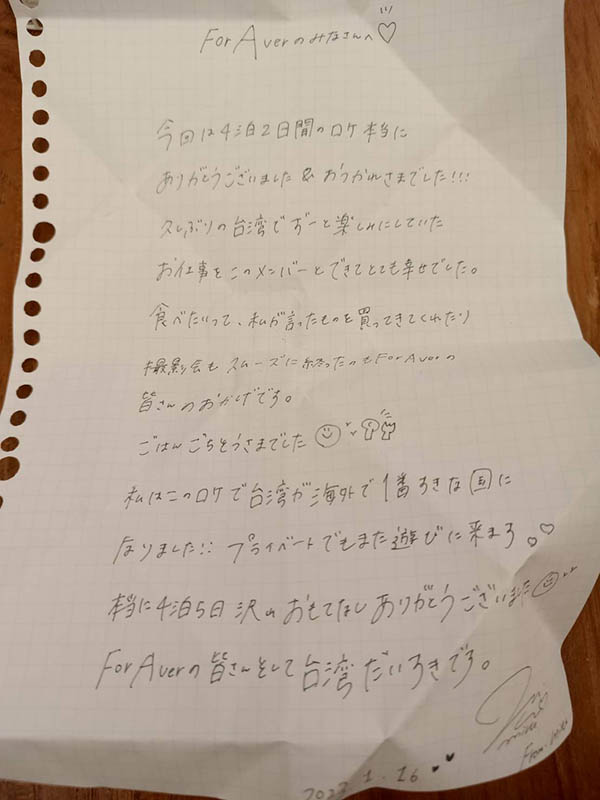 For Aver のみなさんへ♡
今回は4泊2日間のロケ本当に
ありがとうございました & おつかれさまでした!!!
久しぶりの台湾でずーと楽しみにしていた
お仕事をこのメンバーとできてとても幸せでした。
食べたいって、私が言ったものを買ってきてくれたり
撮影会もスムーズに終ったのもFor Averの
皆さんのおかげです。
ごはんごちそうさまでした
私はこのロケで台湾が海外で1番すきな国に
なりました!! プライベートでもまた遊びに来ます♡♡
本当に4泊5日沢山おもてなしありがとうございました
For Averの皆さんそして台湾だいすきです。
From
2023.1.16